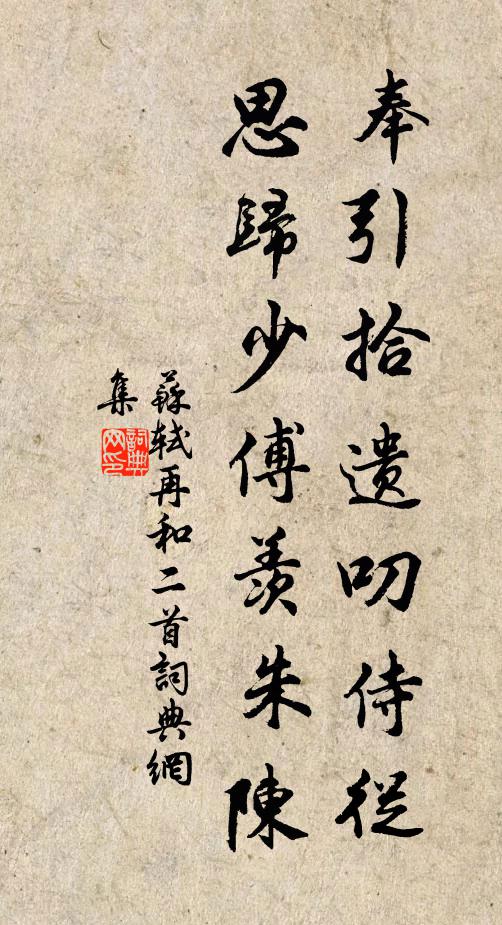 奉引拾遺叨侍從
思歸少傅羨朱陳
蘇軾再和二首詞典網
集
詞典網印